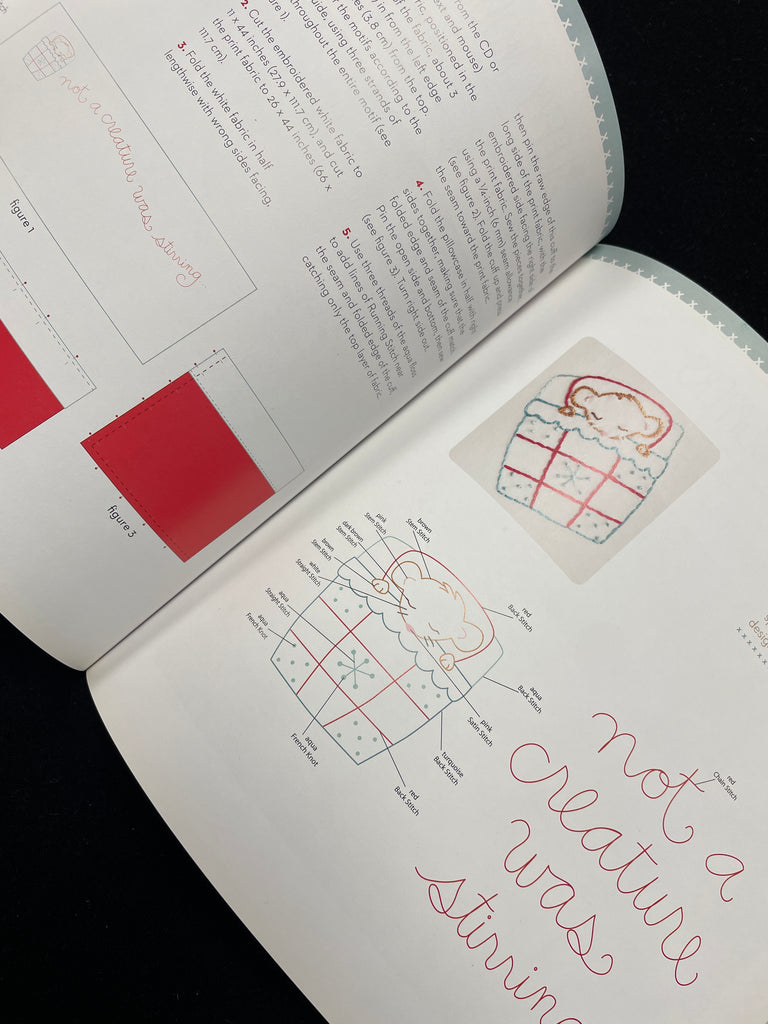 from the CD or
text and mouse)
positioned in the
of the fabric, about 3
in from the left edge
(3.8 cm) from the top
the motifs according to the
guide, using three strands of
throughout the entire motif (see
figure 1).
2. Cut the embroidered white fabric to
11 x 44 inches (27.9 x 111.7 cm), and cut
the print fabric to 26 x 44 inches (66 x
111.7 cm).
3. Fold the white fabric in half
lengthwise with wrong sides facing,
then pin the raw edge of this cuff to the
long side of the print fabric, with the
embroidered side facing the right side of
the print fabric. Sew the pieces together,
using a ¼-inch (6 mm) seam allowance
(see figure 2). Fold the cuff up and press
the seam toward the print fabric.
4. Fold the pillowcase in half with right
sides together, making sure that the
folded edge and seam of the cuff match.
Pin the open side and bottom; then sew
(see figure 3). Turn right side out.
5. Use three threads of the aqua floss
to add lines of Running Stitch near
the seam and folded edge of the cuff,
catching only the top layer of fabric.
not a creature was stirring
figure 1
figure 3
brown
Stem Stitch
pink
Stem Stitch
dark brown
Stem Stitch
brown
Stem Stitch
white
Straight Stitch
aqua
Straight Stitch
aqua
French Knot
red
Back Stitch
aqua
Back Stitch
pink
Satin Stitch
turquoise
Back Stitch
red
Back Stitch
aqua
French Knot
red
Chain Stitch
not a
creature
was
stirring